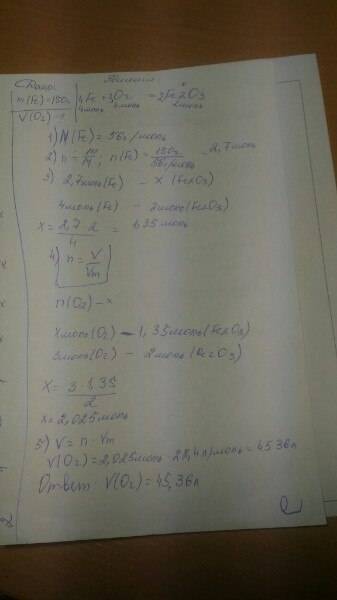 Дано: Решение
m(Fe)=150г 4Fe+3O2 = 2Fe2O3
V(O2)-? 4моль 3моль 2моль
1) M(Fe)=56г/моль
2) n=m/M; n(Fe)=150г/56г/моль=2,7моль
3) 2,7моль(Fe) - x (Fe2O3)
4моль(Fe) - 2моль(Fe2O3)
x=2,7 2/4 = 1,35моль
4) n=V/Vm
n(O2)-x
xмоль(O2) - 1,35моль(Fe2O3)
3моль(O2) - 2моль(Fe2O3)
x=3·1,35/2
x=2,025моль
5) V=n·Vm
V(O2)=2,025моль·22,4л/моль=45,36л
Ответ: V(O2)=45,36л